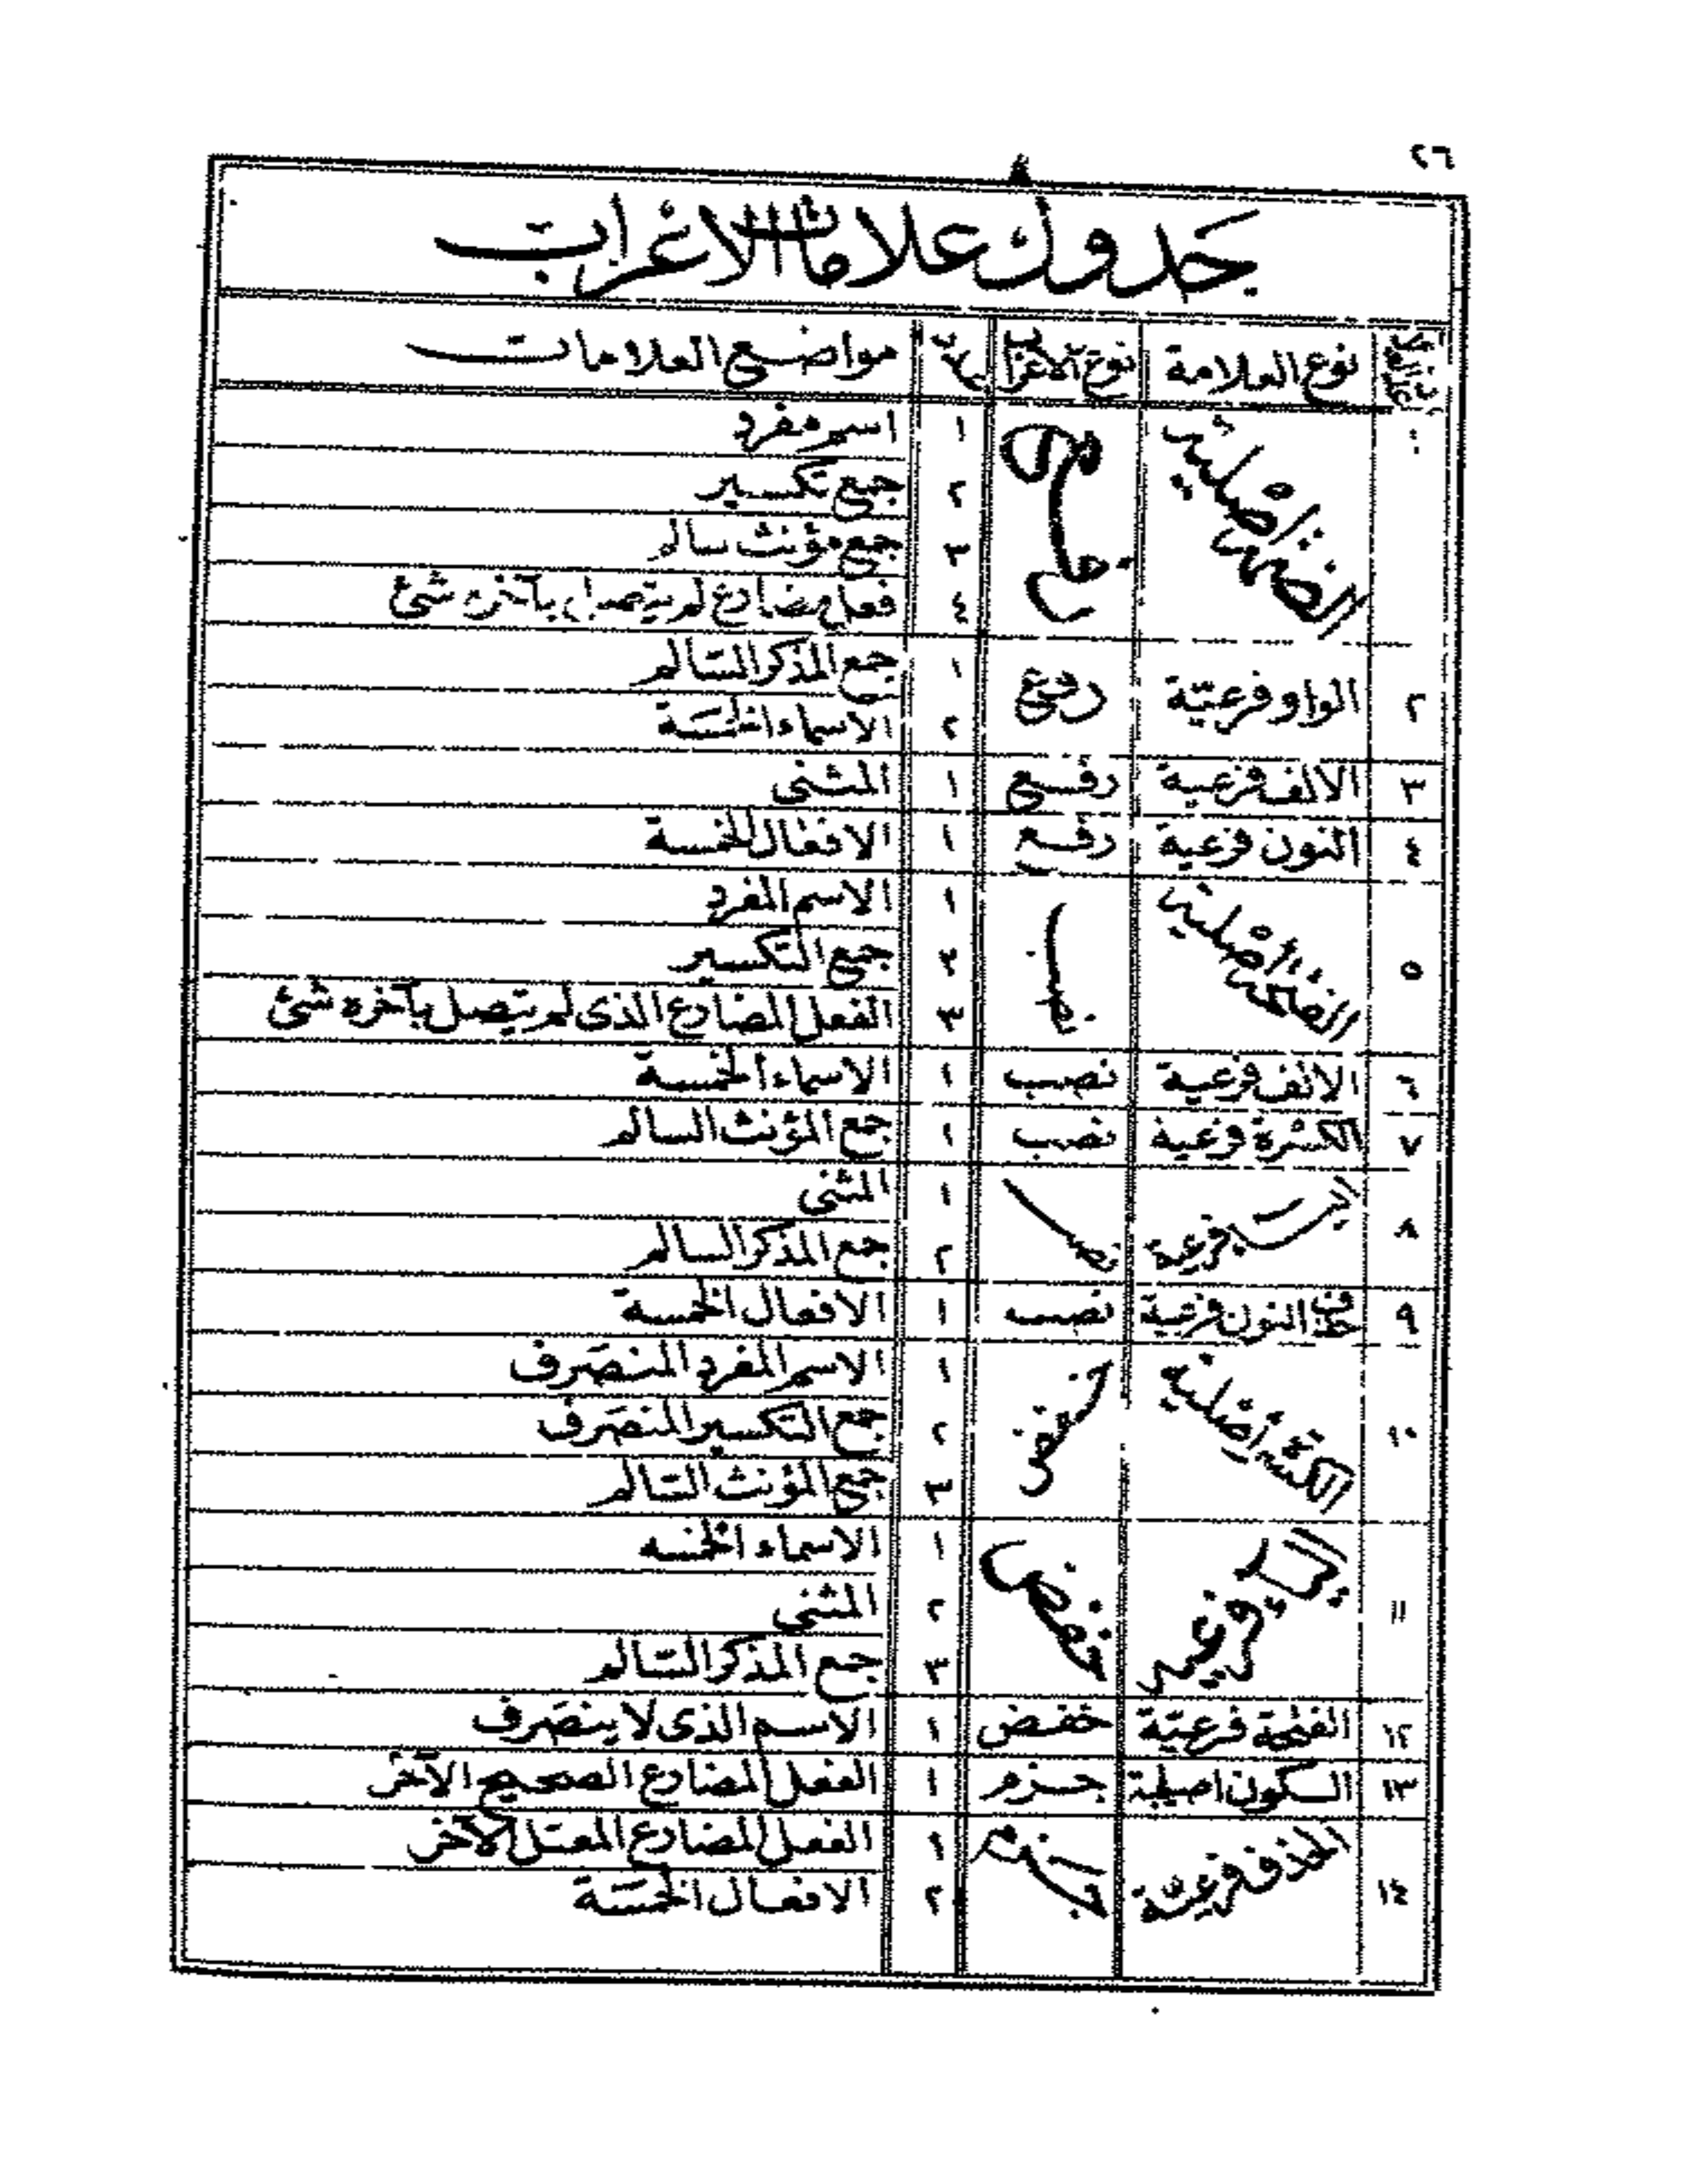 ٢٦
جدول علامات الاعراب
نوع العلامة نوع الاعراب مواضع العلامات
١ الضمة اصلية رفع ١ اسم مفرد
٢ جمع تكسير
٣ جمع مؤنث سالم
٤ فعل مضارع لم يتصل بآخره شئ
٢ الواو فرعيّة رفع ١ جمع المذكر السّالم
٢ الاسماء الخمسَة
٣ الالف فرعية رفع ١ المثنى
٤ النون فرعية رفع ١ الافعال الخمسة
٥ الفتحة اصلية نصب ١ الاسم المفرد
٢ جمع التكسير
٣ الفعل المضارع الذى لم يتصل بآخره شئ
٦ الالف فرعية نصب ١ الاسماء الخمسة
٧ الكسْرة فرعية نصب ١ جمع المؤنث السالم
٨ اليـاء فرعية نصب ١ المثنى
٢ جمع المذكر السالم
٩ حذف النون فرعية نصب ١ الافعال الخمسة
١٠ الكسرة اصلية خفض ١ الاسم المفرد المنصَرف
٢ جمع التكسير المنصَرف
٣ جمع المؤنث السّالم
١١ اليـاء فرعية خفض ١ الاسماء الخمسه
٢ المثنى
٣ جمع المذكر السّالم
١٢ الفتحة فرعيّة خفض ١ الاسم الذى لا ينصَرف
١٣ السكون اصلية جزم ١ الفعل المضارع الصحيح الآخر
١٤ الحذف فرعيّة جزم ١ الفعل المضارع المعتل الآخر
٢ الافعال الخمسَة